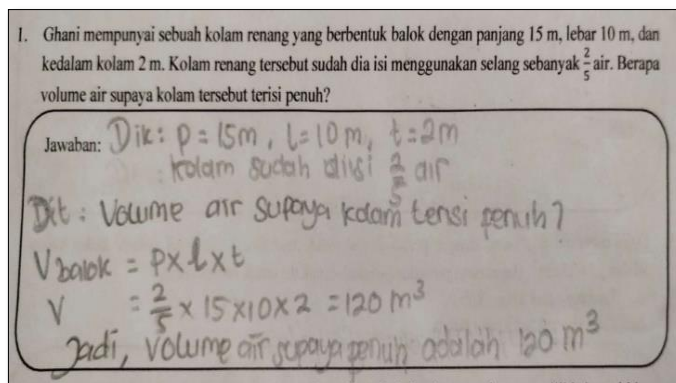 1. Ghani mempunyai sebuah kolam renang yang berbentuk balok dengan panjang 15 m, lebar 10 m, dan
kedalam kolam 2 m. Kolam renang tersebut sudah dia isi menggunakan selang sebanyak 2/5 air. Berapa
volume air supaya kolam tersebut terisi penuh?
Jawaban: Dik : P = 15m , l = 10 m, t = 2m
: kolam sudah diisi 2/5 air
Dit : Volume air supaya kolam terisi penuh ?
V balok = P x l x t
V = 2/5 x 15 x 10 x 2 = 120 m³
Jadi, volume air supaya penuh adalah 120 m³